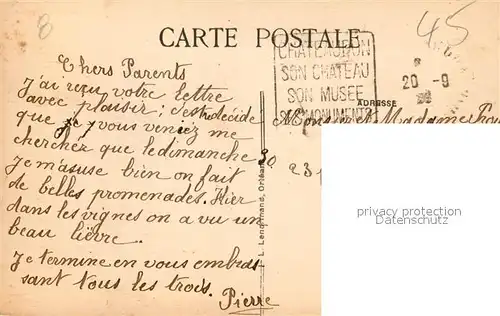 8
CARTE POSTALE
45
CHATEAUDUN
SON CHATEAU
SON MUSEE
MONUMENTS
20 - 9
ADRESSE
Chers Parents
J'ai reçu votre lettre
avec plaisir ; c'est décidé
que je vous veniez me
chercher que le dimanche
30
Je m'asuse bien on fait
de belles promenades. Hier
dans les vignes on a vu un
beau lièvre.
Je termine en vous embras
sant tous les trois.
Pierre
L. Lenormand, Orléans
Monsieur et Madame
23
privacy protection
Datenschutz